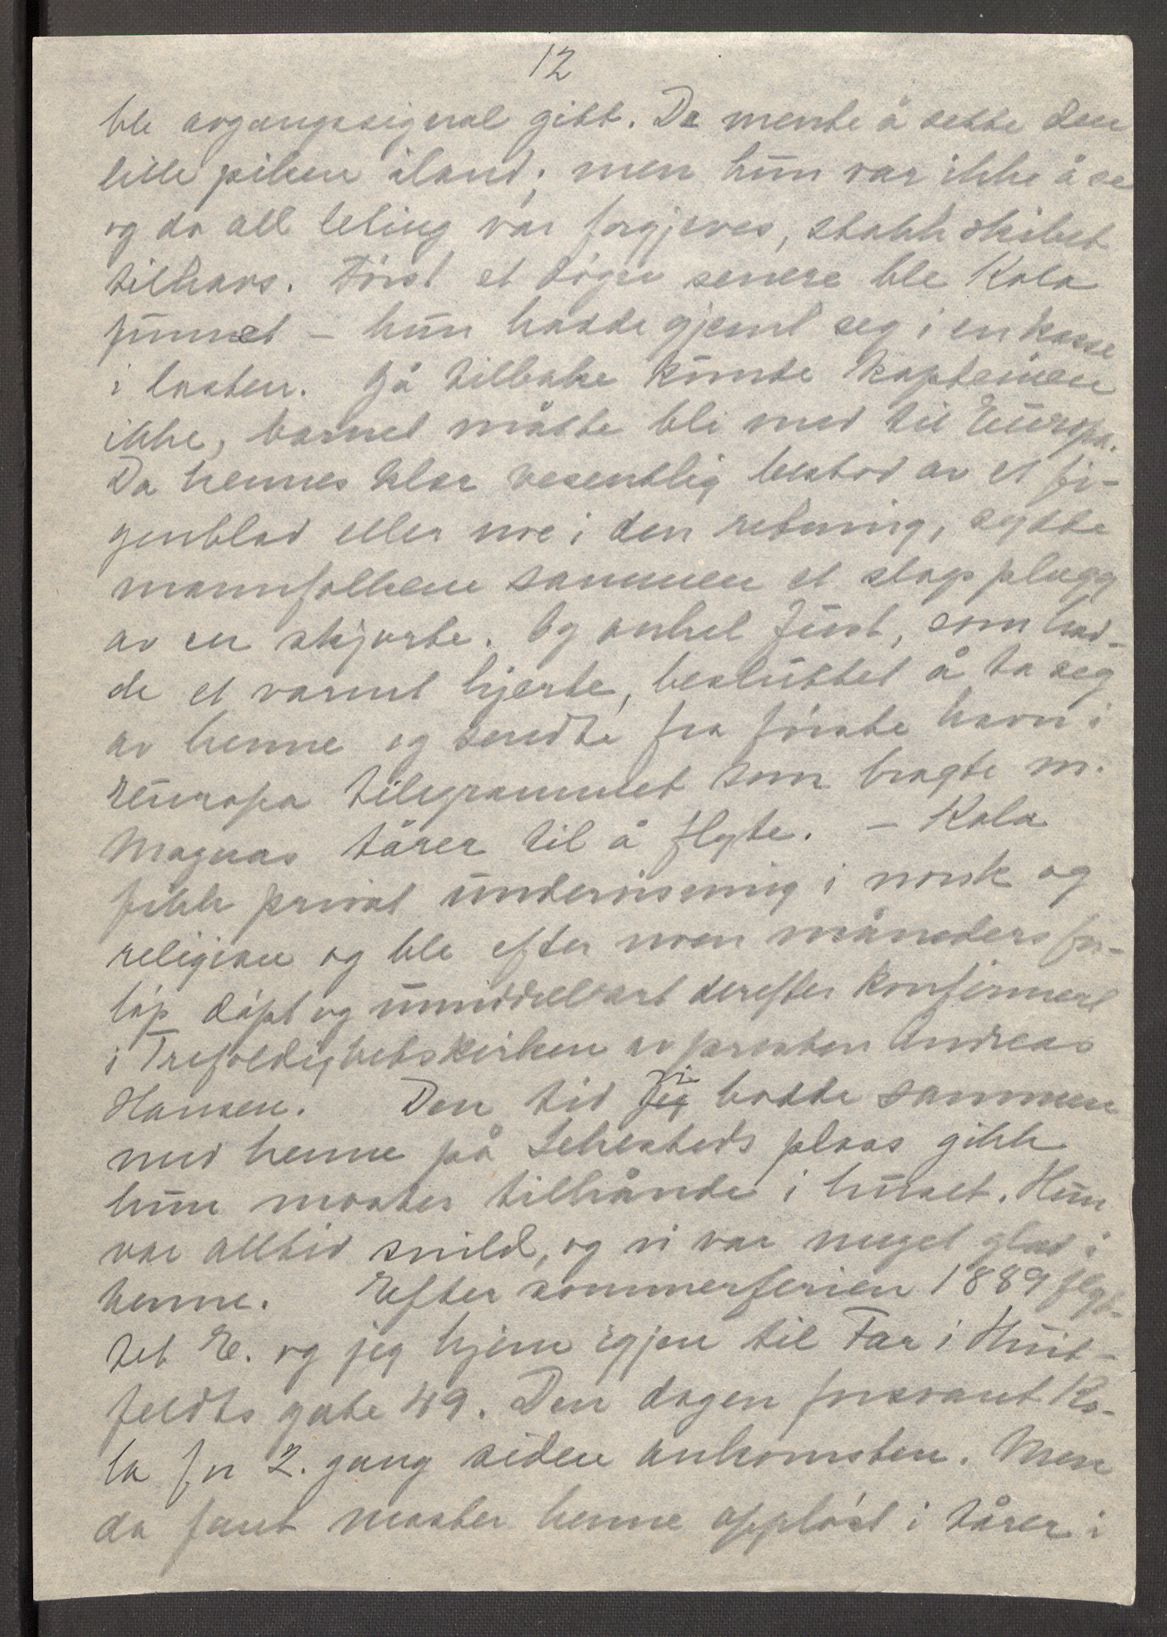 12
ble avgangssignal gitt. De mente å sette den
lille piken iland; men hun var ikke å se
og da all leting var forgjeves, stakk skibet
tilhavs. Först et dögn senere ble Kala
funnet – hun hadde gjemt seg i en kasse
i lasten. Gå tilbake kunde kapteinen
ikke, barnet måtte bli med til Europa.
Da hennes klær vesentlig bestod av et fi-
genblad eller noe i den retning, sydde
mannfolkene sammen et slags plagg
av en skjorte. Og onkel Just, som had-
de et varmt hjerte, besluttet å ta seg
av henne og sendte fra förste havn i
Europa telegrammet som bragte m.
Magnas tårer til å flyte. – Kala
fikk privat undervisning i norsk og
religion og ble efter noen måneders for-
löp döpt og umiddelbart derefter konfirmert
i Trefoldighetskirken av presten Andreas
Hansen. Den tid vi bodde sammen
med henne på Sehesteds plass gikk
hun moster tilhånde i huset. Hun
var alltid snild, og vi var meget glad i
henne. Efter sommerferien 1889 flyt-
tet E. og jeg hjem igjen til Far i Huit-
feldts gate 49. Den dagen forsvant Ka-
la for 2. gang siden ankomsten. Men
da fant moster henne opplöst i tårer i